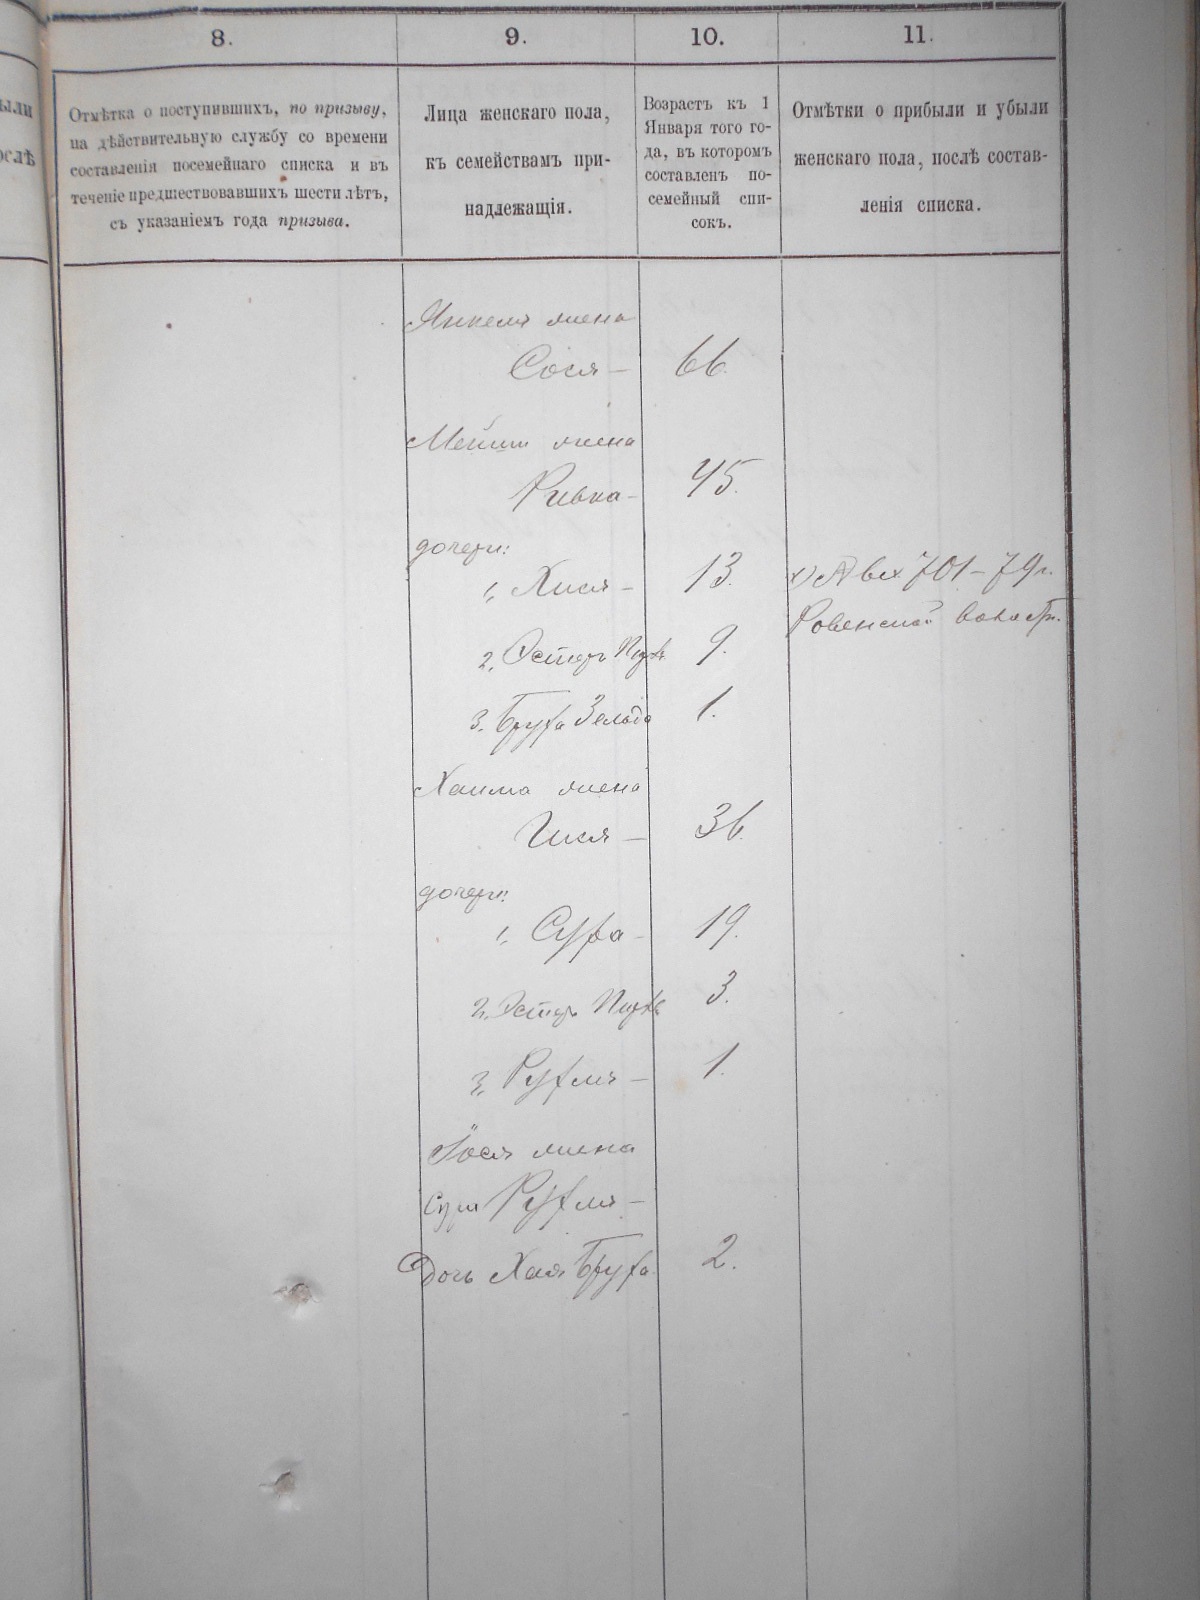 ыли
ослѣ
8.
9.
10.
11.
Отмѣтка о поступившихъ, по призыву,
на дѣйствительную службу со времени
составленія посемейнаго списка и въ
теченіе предшествовавшихъ шести лѣтъ,
съ указаніемъ года призыва.
Лица женскаго пола,
къ семействамъ при-
надлежащія.
Возрастъ къ 1
Января того го-
да, въ которомъ
составленъ по-
семейный спи-
сокъ.
Отмѣтки о прибыли и убыли
женскаго пола, послѣ состав-
ленія списка.
Янкеля жена
Сося — 66.
жена
Ривка — 45.
дочери:
1, Хися — 13.
701 — 79 г.
Ровенской
2, Эстеръ 9.
3. Бруха Зельда 1.
Хаима жена
Гися — 36.
дочери:
1, Сура — 19.
2, Эстеръ 3.
3, Рухля — 1.
Іося жена
Сура Рухля —
Дочь Хая Бруха 2.